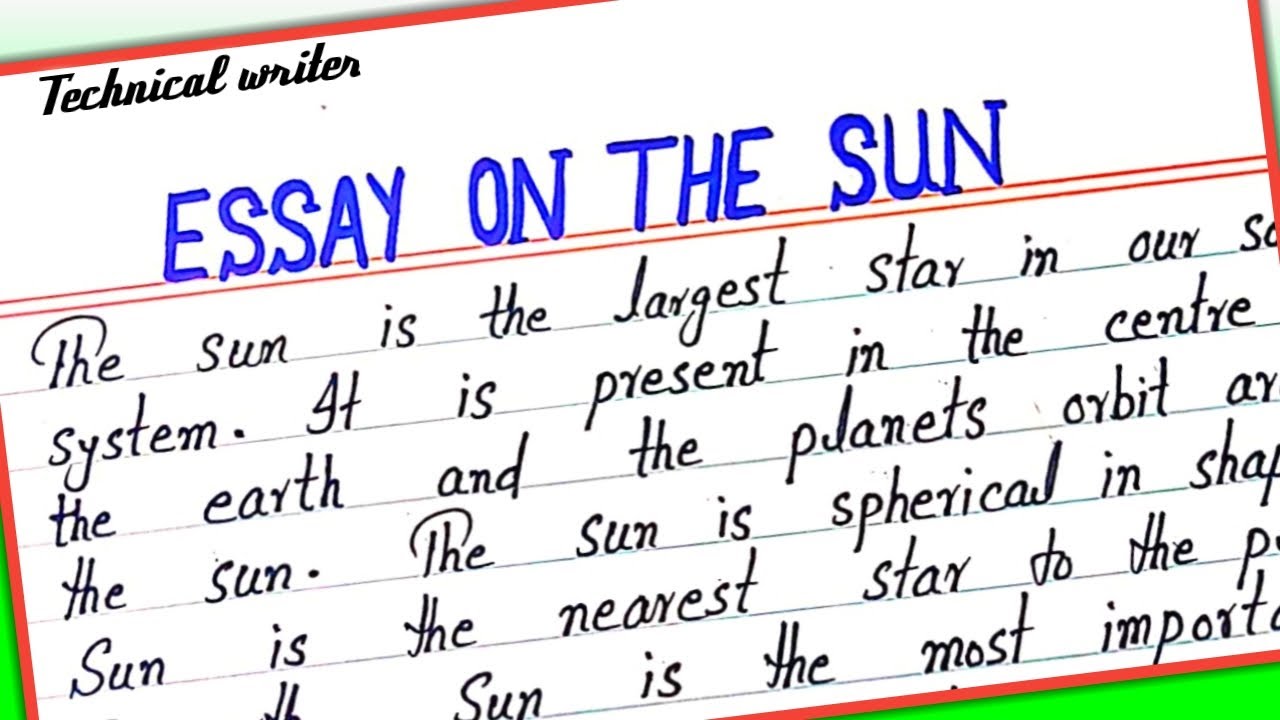 Technical writer
ESSAY ON THE SUN
The sun is the largest star in our so
system. It is present in the centre
the earth and the planets orbit ar
the sun. The sun is spherical in shap
Sun is the nearest star to the p
Sun is the most importa